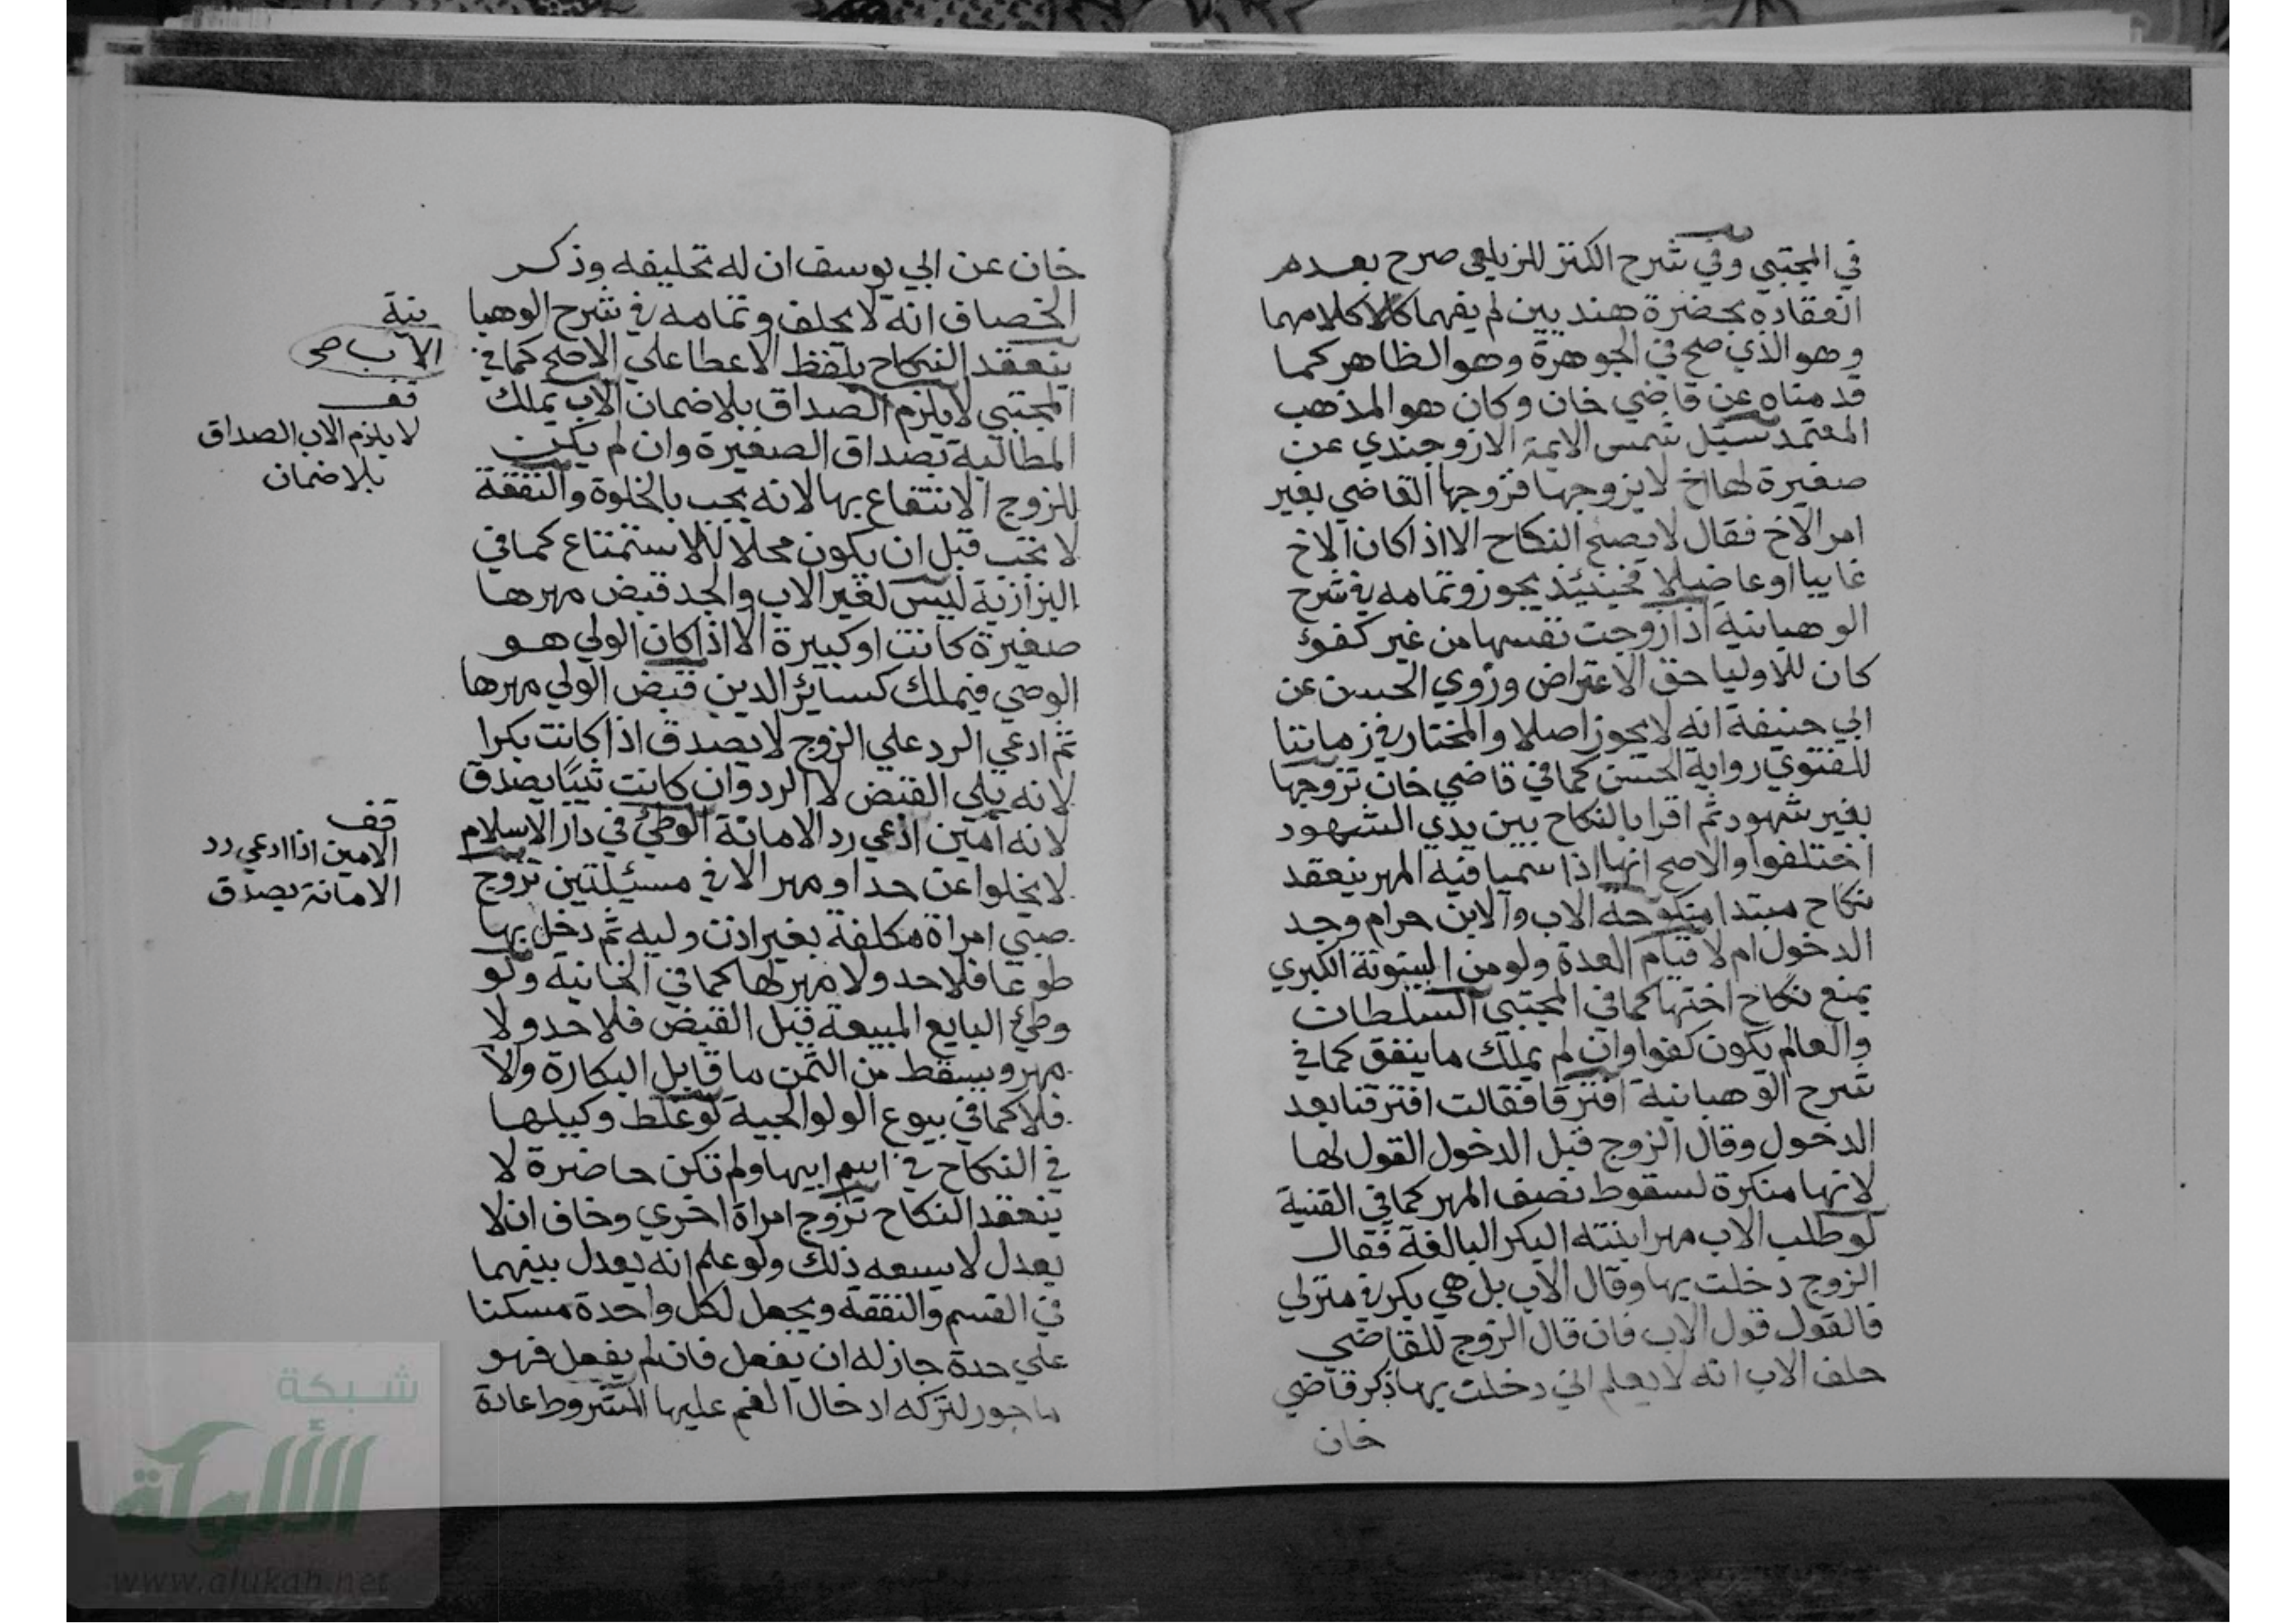 في المجتبي وفي شرح الكنز للزيلعي صرح بعدم
انعقاده بحضرة هنديين لم يفهما كلامهما
وهو الذي صح في الجوهرة وهو الظاهر كما
قدمناه عن قاضي خان وكان هو المذهب
المعتمد سيل شمس الايمة الاوزجندي عن
صغيرة لها اخ لا يزوجها فزوجها القاضي بغير
امر الاخ فقال لا يصح النكاح الا اذا كان الاخ
غايبا او عاضلا فحينئذ يجوز وتمامه في شرح
الوهبانية اذا زوجت نفسها من غير كفوء
كان للاوليا حق الاعتراض وروي الحسن عن
ابي حنيفة انه لا يجوز اصلا والمختار في زماننا
للفتوي رواية الحسن كما في قاضي خان تزوجها
بغير شهود ثم اقرا بالنكاح بين يدي الشهود
اختلفوا والاصح انهما اذا سميا فيه المهر ينعقد
نكاح مبتدا منكوحة الاب والابن حرام وجد
الدخول ام لا قيام العدة ولو من البينونة الكبري
يمنع نكاح اختها كما في المجتبي السلطان
والعالم يكون كفوا وان لم يملك ما ينفق كما في
شرح الوهبانية افترقا فقالت افترقنا بعد
الدخول وقال الزوج قبل الدخول القول لها
لانها منكرة لسقوط نصف المهر كما في القنية
لو طلب الاب مهر ابنته البكر البالغة فقال
الزوج دخلت بها وقال الاب بل هي بكر في منزلي
فالقول قول الاب فان قال الزوج للقاضي
حلف الاب انه لا يعلم اني دخلت بها ذكر قاضي
خان
خان عن ابي يوسف ان له تحليفه وذكر
الخصاف انه لا يحلف وتمامه في شرح الوهبا
نية
ينعقد النكاح بلفظ الاعطا علي الاصح كما في
المجتبي لا يلزم الصداق بلا ضمان الاب يملك
المطالبة بصداق الصغيرة وان لم يكن
للزوج الانتفاع بها لانه يجب بالخلوة والنفقة
لا تجب قبل ان يكون محلا للاستمتاع كما في
البزازية ليس لغير الاب والجد قبض مهرها
صغيرة كانت او كبيرة الا اذا كان الولي هو
الوصي فيملك كسائر الدين قبض الولي مهرها
ثم ادعي الرد علي الزوج لا يصدق اذا كانت بكرا
لانه يلي القبض لا الرد وان كانت ثيبا يصدق
لانه امين ادعي رد الامانة الوطئ في دار الاسلام
لا يخلوا عن حد او مهر الا في مسئلتين تزوج
صبي امراة مكلفة بغير اذن وليه ثم دخل بها
طوعا فلا حد ولا مهر لها كما في الخانية ولو
وطئ البايع المبيعة قبل القبض فلا حد ولا
مهر ويسقط من الثمن ما قابل البكارة والا
فلا كما في بيوع الولوالجية لو غلط وكيلها
في النكاح في اسم ابيها ولم تكن حاضرة لا
ينعقد النكاح تزوج امراة اخري وخاف ان لا
يعدل لا يسعه ذلك ولو علم انه يعدل بينهما
في القسم والنفقة ويجعل لكل واحدة مسكنا
علي حدة جاز له ان يفعل فان لم يفعل فهو
ماجور لتركه ادخال الغم عليها المشروط عادة
الاب صح
قف
لا يلزم الاب الصداق
بلا ضمان
قف
الامين اذا ادعي رد
الامانة يصدق
شبكة
الألوكة
www.alukah.net